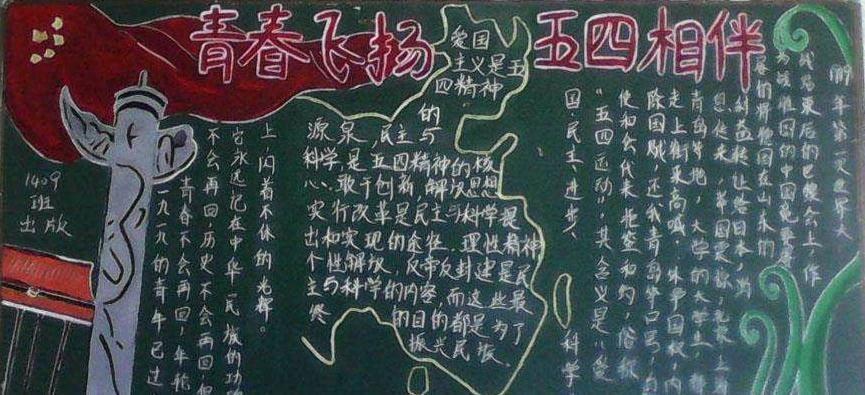 青春飞扬 五四相伴
1919年第一次世界大
战结束后的巴黎会上,作
为战胜国的中国竟要
将德国在山东的
利益转让给日本,消
息传来,举国震惊,北京上海
青岛等地,大学的大学生,都
走上街来高喊:外争国权,内
除国贼,还我青岛等口号,
使和会代表拒签和约,俗称
"五四运动",其含义是"爱
国、民主、进步、科学
爱国
主义是五
四精神"
的
源泉,民主与
科学是五四精神的核
心、敢于创新解放思想
实行改革是民主与科学提
出和实现的途径,理性精神、
个性解放,反帝反封建是民
主与科学的内容,而这些最
终的目的都是为了
振兴民族。
一九一九的青年已过
青春不会再回,年轮
不会再回,历史不会再回,但
它永远记在中华民族的功
上,闪着不休的光辉。
1409
班
出版